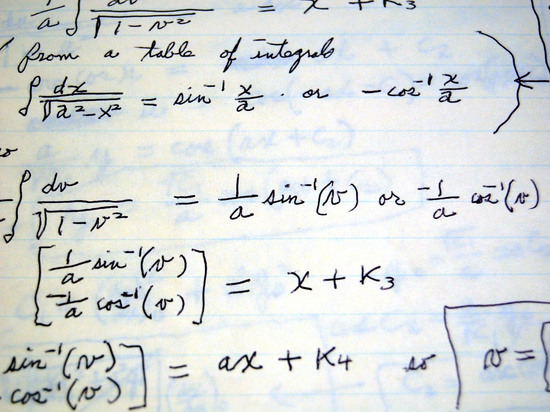 1/a ∫ dv/√(1-v²) = x + K₃
from a table of integrals
∫ dx/√(a²-x²) = sin⁻¹ x/a · or -cos⁻¹ x/a
so
∫ dv/√(1-v²) = 1/a sin⁻¹(v) or -1/a cos⁻¹(v)
[1/a sin⁻¹(v)
-1/a cos⁻¹(v)] = x + K₃
sin⁻¹(v)
cos⁻¹(v)] = ax + K₄ so v = [